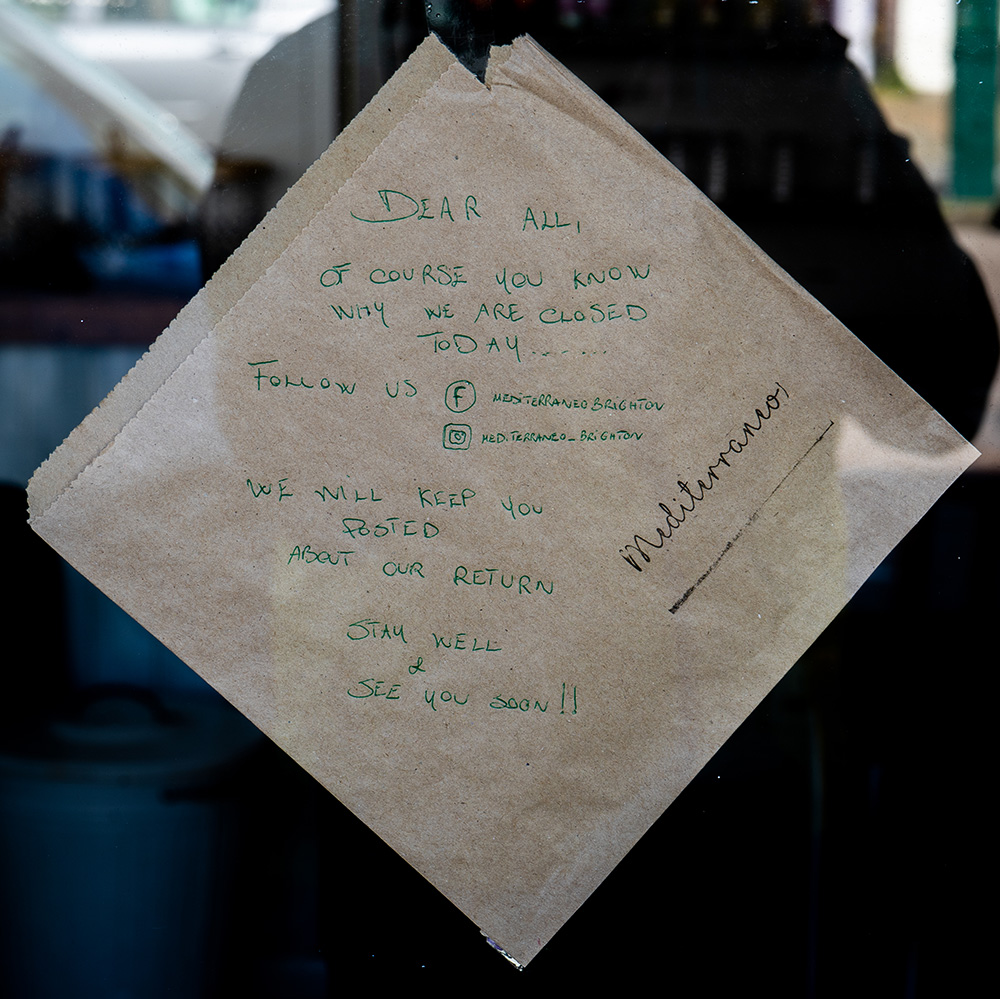 DEAR ALL,
OF COURSE YOU KNOW
WHY WE ARE CLOSED
TODAY.......
FOLLOW US f MEDITERRANEOBRIGHTON
MEDITERRANEO_BRIGHTON
WE WILL KEEP YOU
POSTED
ABOUT OUR RETURN
STAY WELL
&
SEE YOU SOON!!
Mediterraneo,